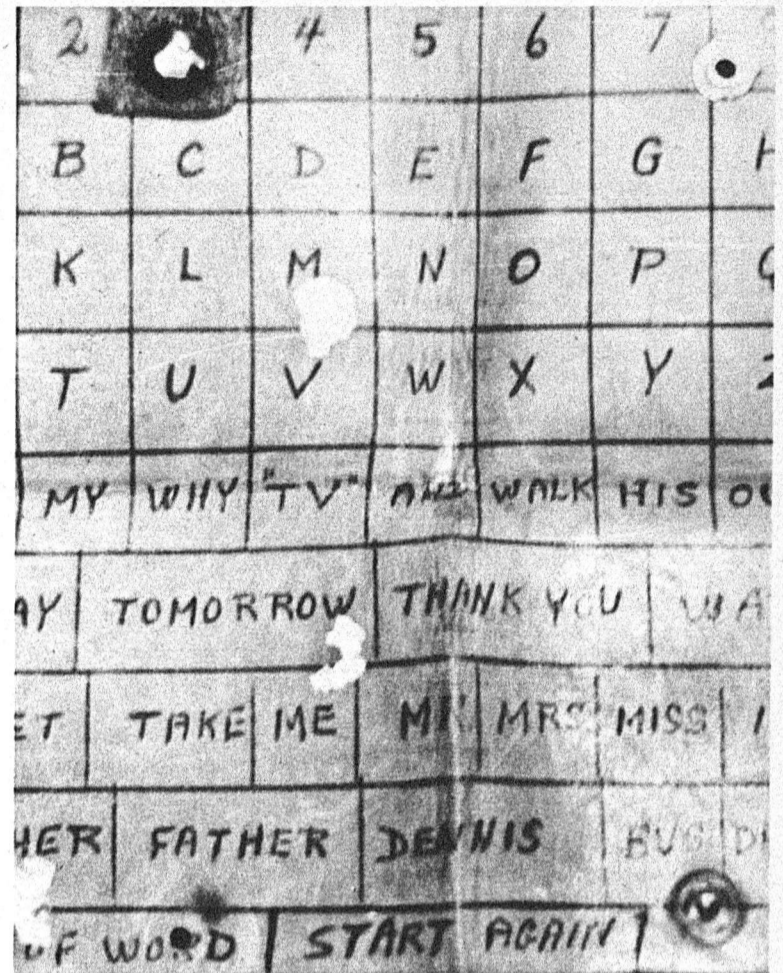 2 4 5 6 7
B C D E F G H
K L M N O P
T U V W X Y Z
MY WHY "TV" AND WALK HIS
TOMORROW THANK YOU
TAKE ME MR MRS MISS
FATHER DENNIS
OF WORD START AGAIN